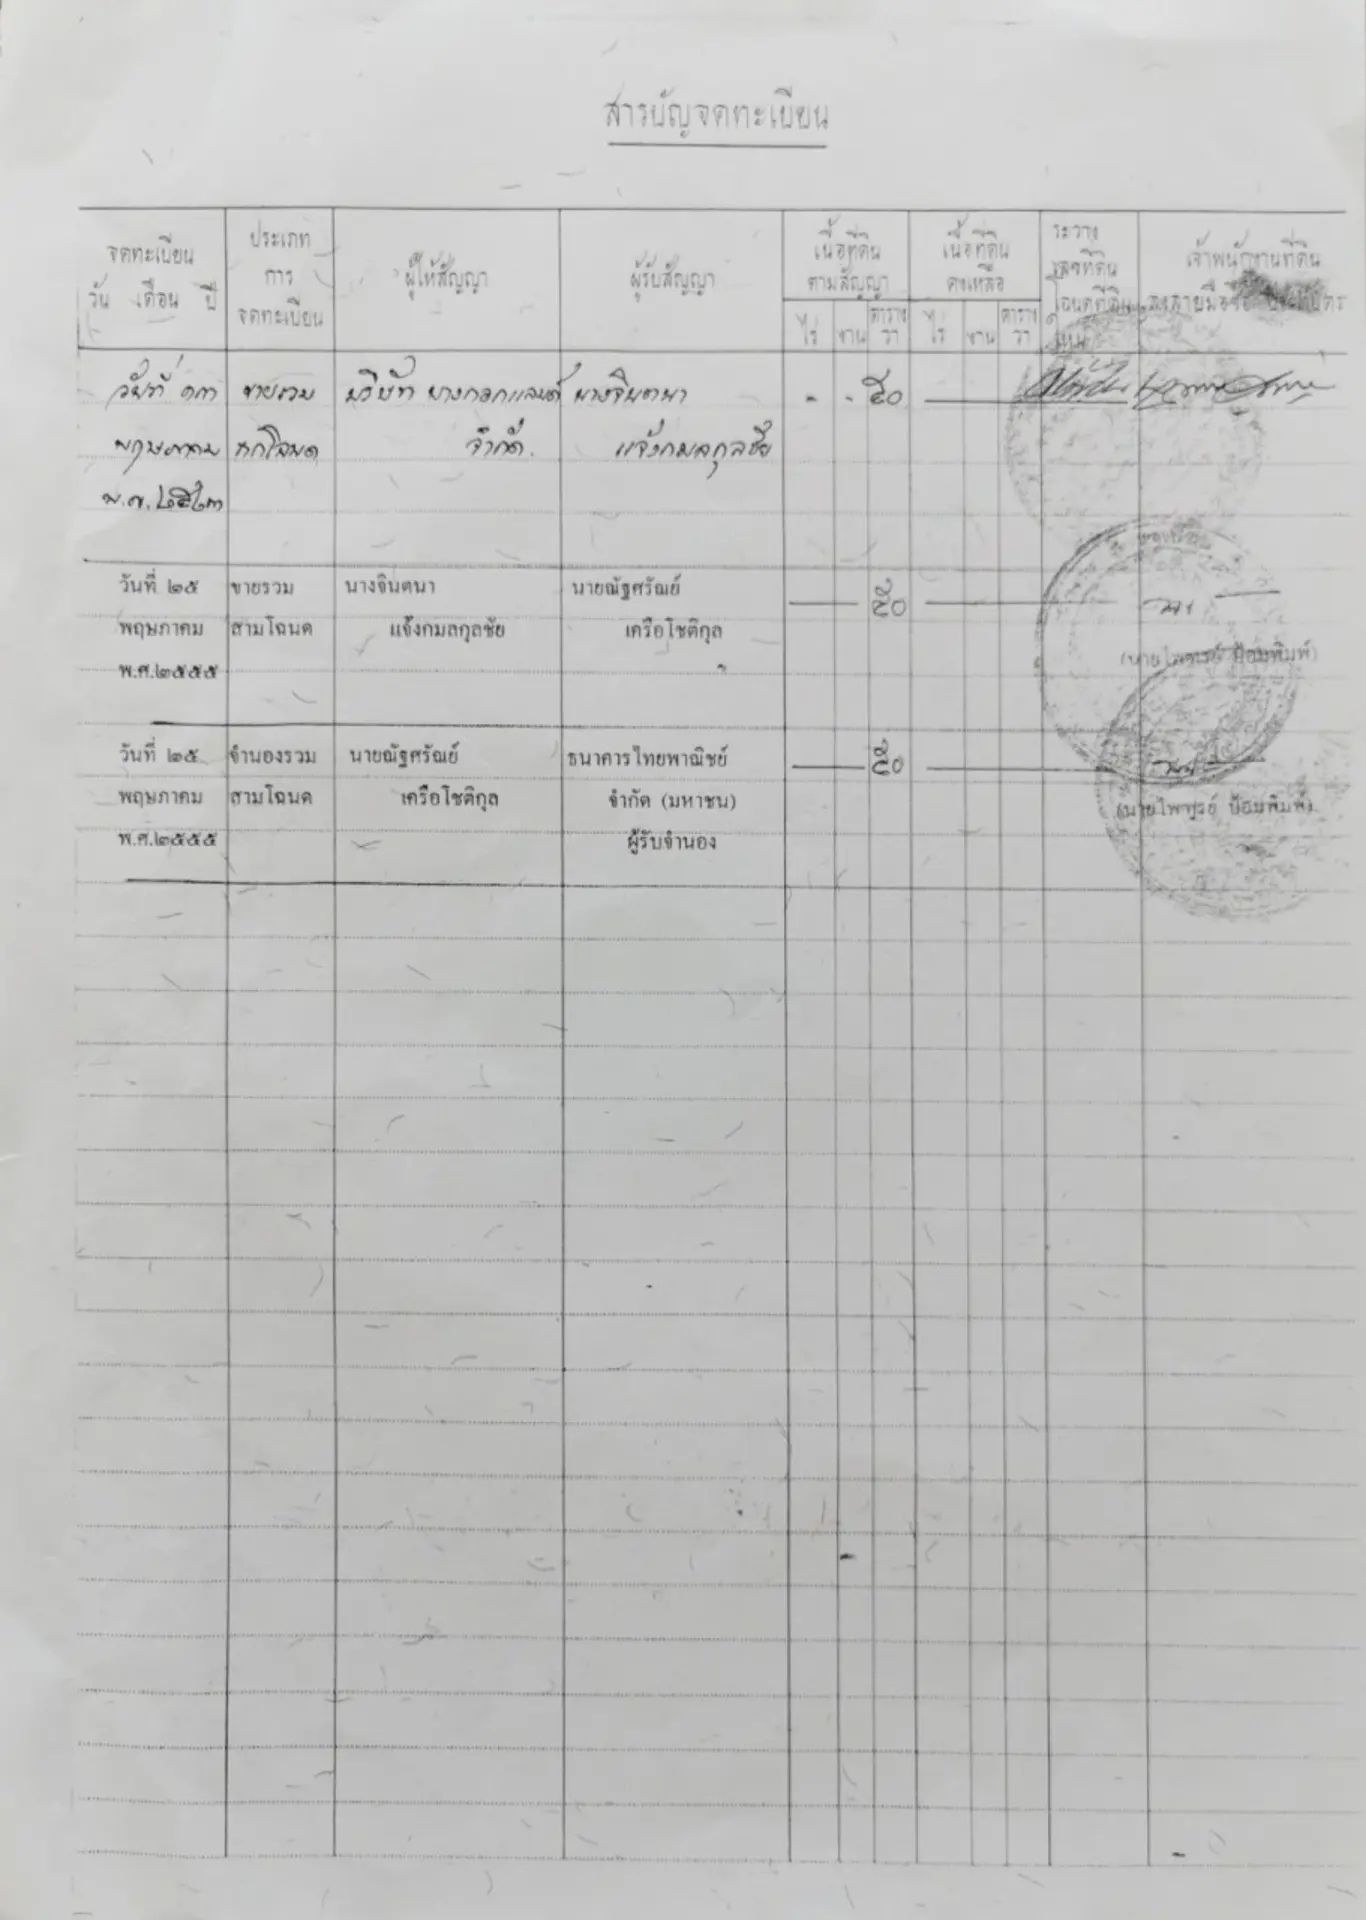 สารบัญจดทะเบียน
จดทะเบียน
วัน เดือน ปี
ประเภท
การ
จดทะเบียน
ผู้ให้สัญญา
ผู้รับสัญญา
เนื้อที่ดิน
ตามสัญญา
ไร่ งาน ตาราง
วา
เนื้อที่ดิน
คงเหลือ
ไร่ งาน ตาราง
วา
ระวาง
เลขที่ดิน
โฉนดที่ดิน
ใหม่
เจ้าพนักงานที่ดิน
ลงลายมือชื่อ ประทับตรา
วันที่ ๑๓ ขายรวม บริษัท บางกอกแลนด์ นางจินตนา - - ๕๐
พฤษภาคม หกโฉนด จำกัด. แจ้งกมลกุลชัย
พ.ศ. ๒๕๒๓
วันที่ ๒๕ ขายรวม นางจินตนา นายณัฐศรัณย์ ๕๐
พฤษภาคม สามโฉนด แจ้งกมลกุลชัย เครือโชติกุล
พ.ศ.๒๕๕๕ (นายไพฑูรย์ ป้อมพิมพ์)
วันที่ ๒๕ จำนองรวม นายณัฐศรัณย์ ธนาคารไทยพาณิชย์ ๕๐
พฤษภาคม สามโฉนด เครือโชติกุล จำกัด (มหาชน) (นายไพฑูรย์ ป้อมพิมพ์)
พ.ศ.๒๕๕๕ ผู้รับจำนอง